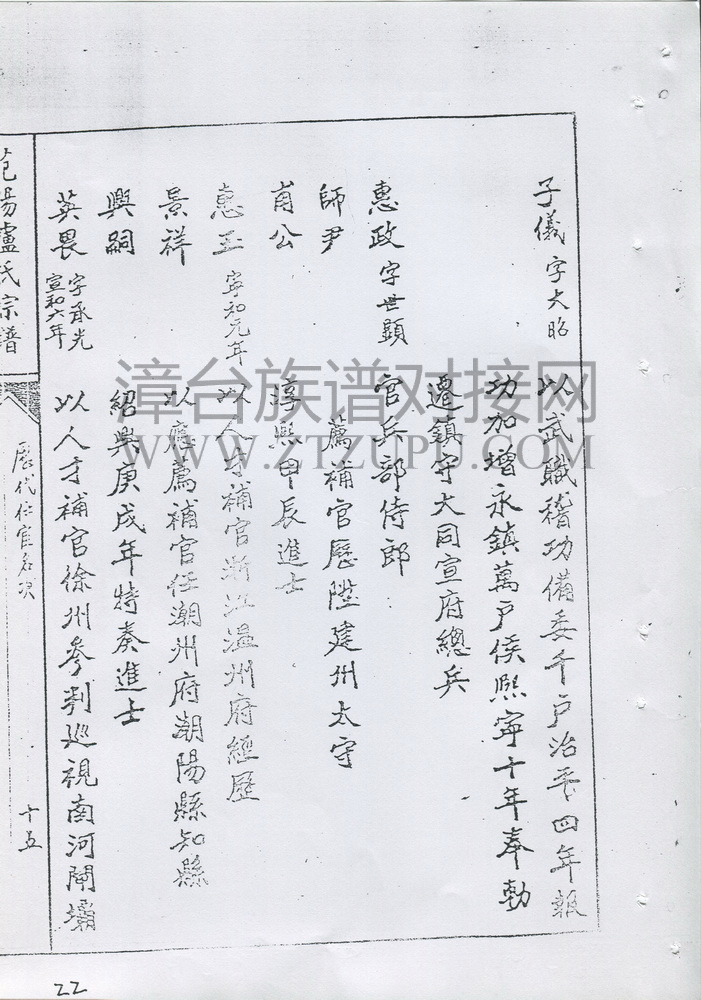 子儀 字大昭
以武職稽功備委千戶治平四年報
功加增永鎮萬戶侯熙寧十年奉勅
遷鎮守大同宣府總兵
惠政 字世顯 官兵部侍郎
師尹 薦補官歷陞建州太守
甫公 淳熙甲辰進士
惠玉 寧和元年 以人才補官浙江溫州府經歷
景祥 以應薦補官任潮州府潮陽縣知縣
興嗣 紹興庚戌年特奏進士
英畏 字承光 宣和六年 以人才補官徐州參判巡視南河閘壩
范陽盧氏宗譜
歷代仕宦名次
十五
漳台族谱对接网
WWW.ZTZUPU.COM
22